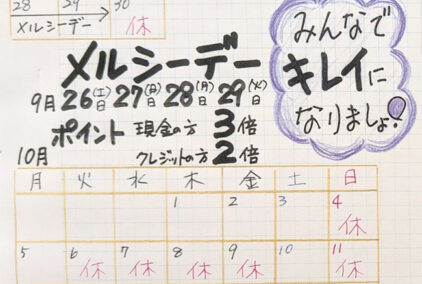 28 29 30
メルシーデー 休
メルシーデー
9月26(土)日27(日)日28(月)日29(火)日
ポイント 現金の方 3倍
クレジットの方 2倍
みんなで
キレイに
なりましょ!
10月
月 火 水 木 金 土 日
1 2 3 4
休
5 6 7 8 9 10 11
休 休 休 休 休